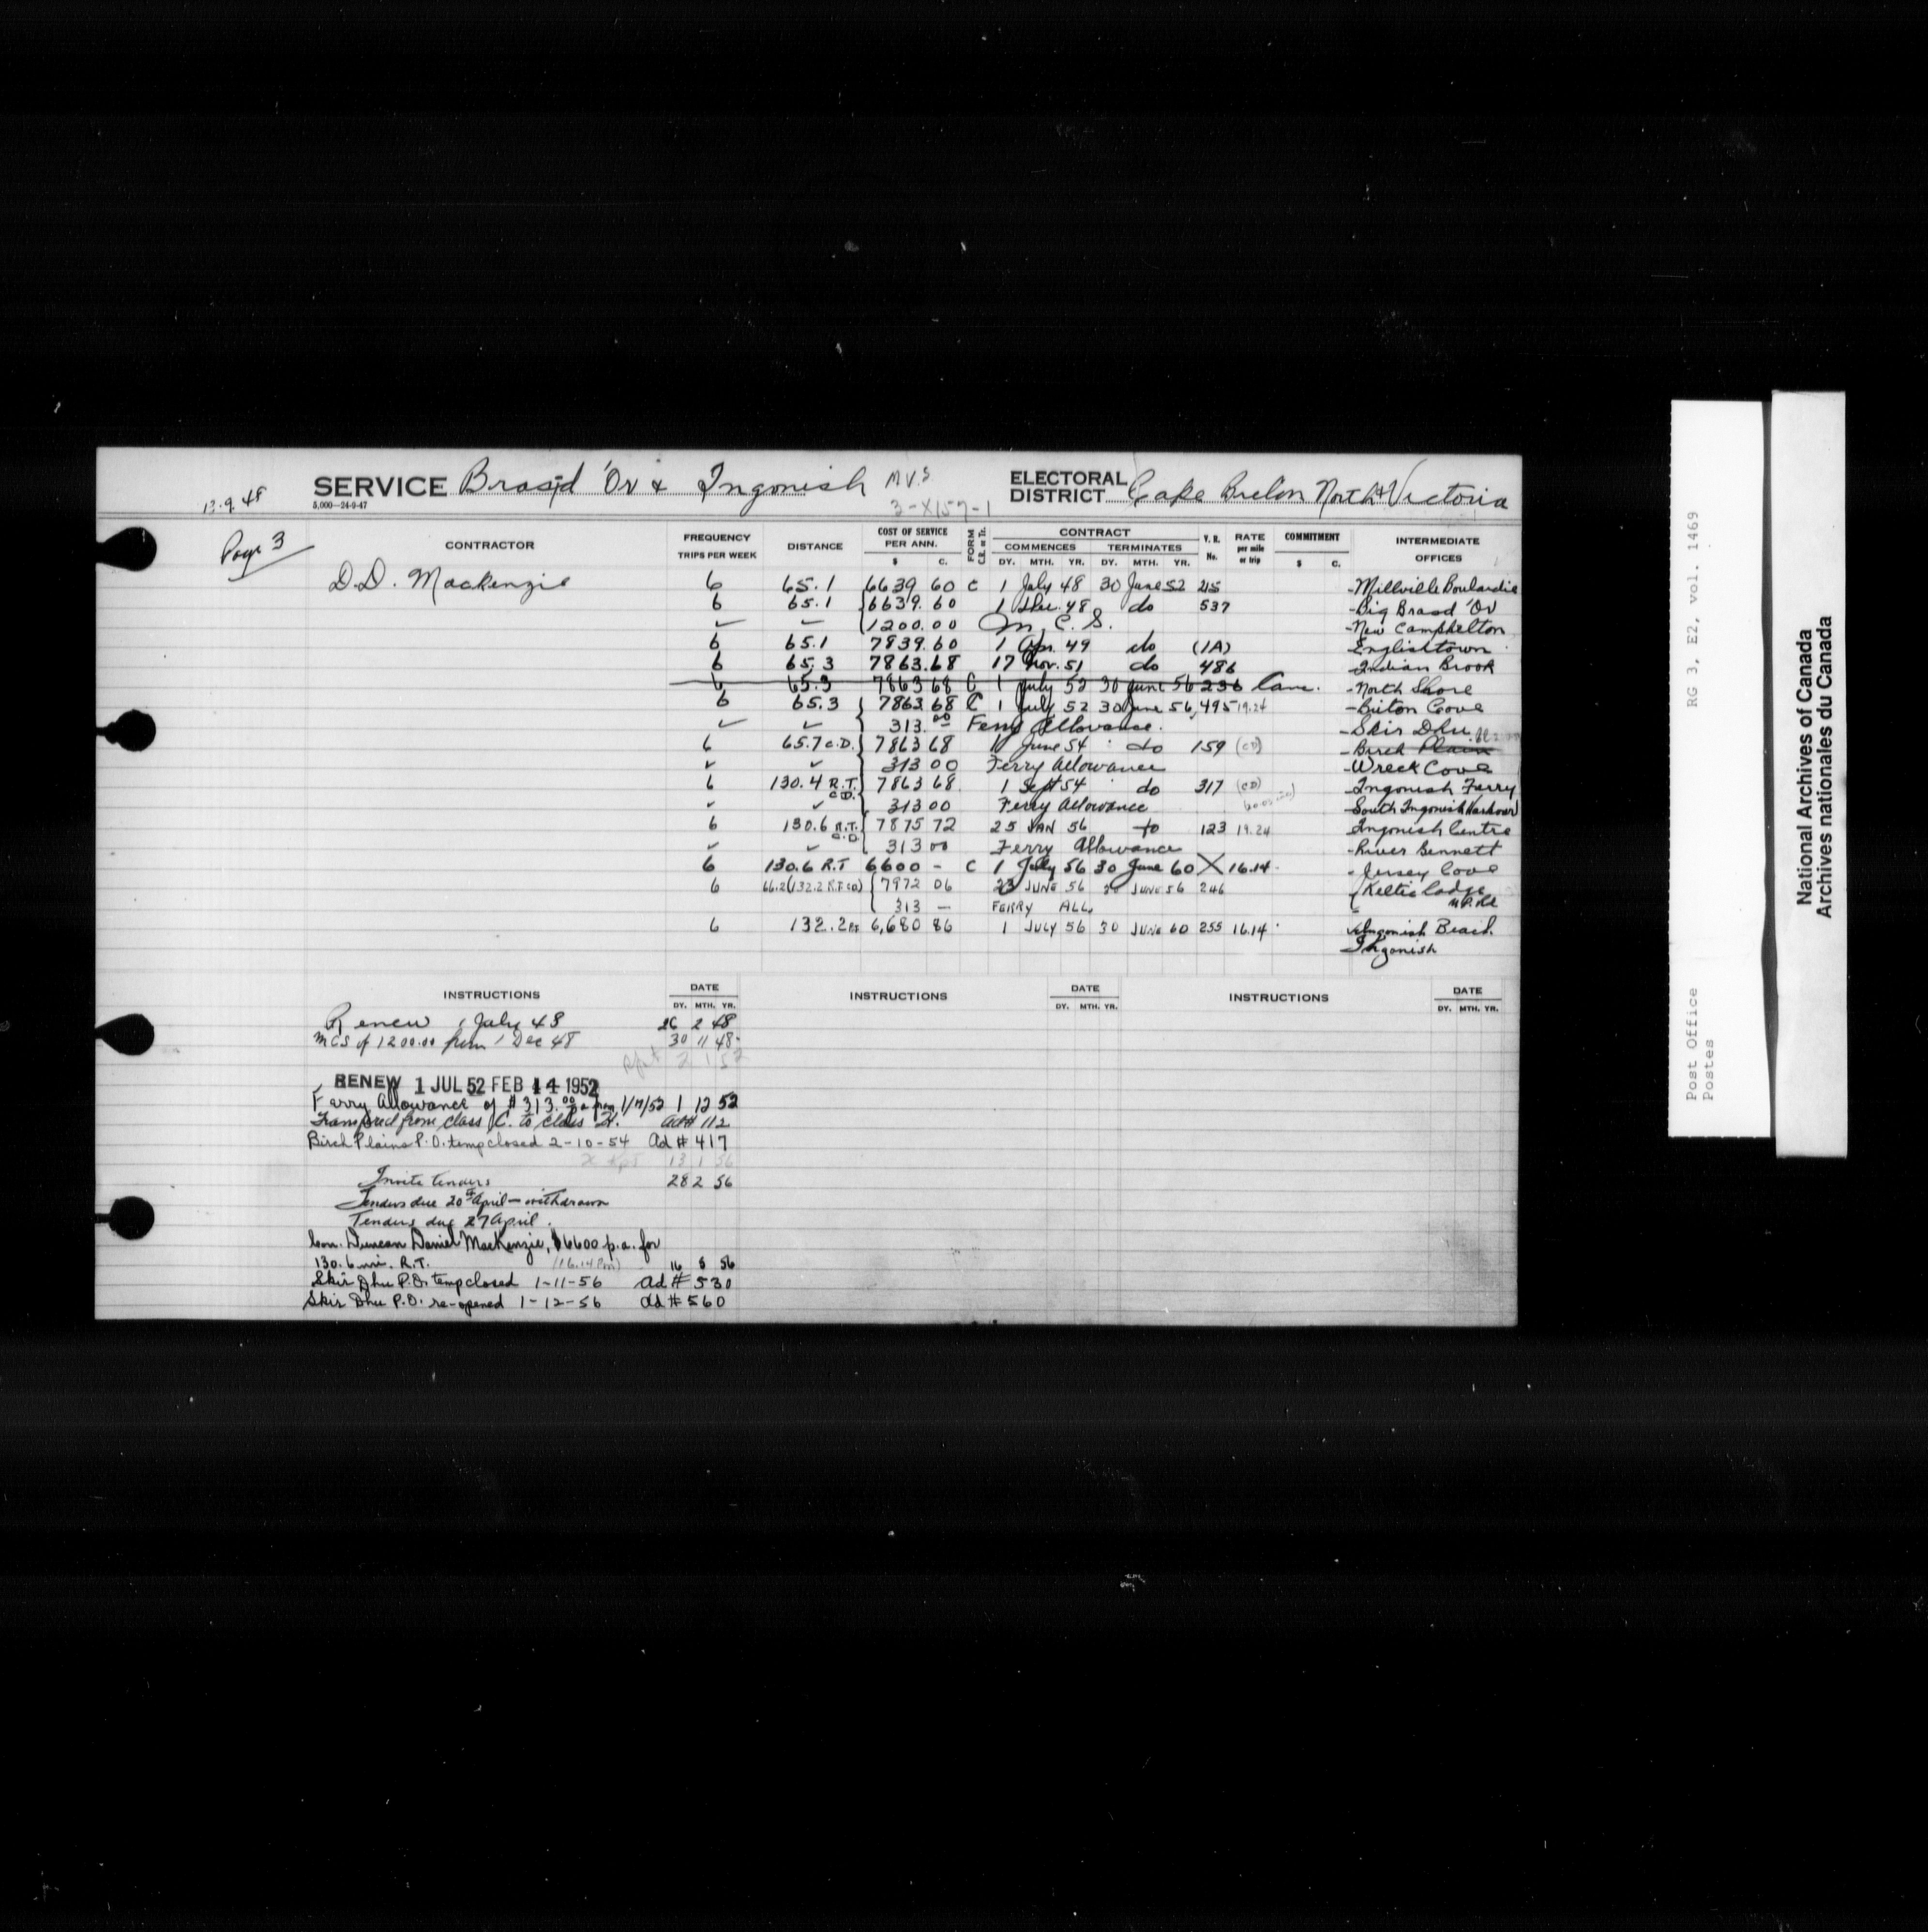 SERVICE Bras d'Or & Ingonish M.V.S ELECTORAL DISTRICT Cape Breton North & Victoria
5,000-24-9-47
13-9-48
3-X157-1
Page 3
CONTRACTOR FREQUENCY TRIPS PER WEEK DISTANCE COST OF SERVICE PER ANN. $ C. FORM C.R. or Tr. CONTRACT COMMENCES DY. MTH. YR. TERMINATES DY. MTH. YR. V.R. No. RATE per mile or trip COMMITMENT $ C. INTERMEDIATE OFFICES
D.D. Mackenzie 6 65.1 6639 60 C 1 July 48 30 June 52 215 -Millville Boulardie
6 65.1 6639.60 1 Dec. 48 do 537 -Big Brasd 'Or
✓ ✓ 1200.00 M.C.S. -New Campbelton
6 65.1 7839.60 1 Apr. 49 do (1A) -Englishtown
6 65.3 7863.68 17 Nov. 51 do 486 -Indian Brook
6 65.3 7863 68 C 1 July 52 30 June 56 236 Canc. -North Shore
6 65.3 7863 68 C 1 July 52 30 June 56 495 19.24 -Briton Cove
✓ ✓ 313.00 Ferry Allowance. -Skir Dhu
6 65.7 C.D. 7863 68 1 June 54 do 159 (CD) -Birch Plain
✓ ✓ 313 00 Ferry Allowance -Wreck Cove
6 130.4 R.T. C.D. 7863 68 1 Sept 54 do 317 (CD) -Ingonish Ferry
✓ ✓ 313 00 Ferry Allowance -South Ingonish Harbour
6 130.6 R.T. C.D. 7875 72 25 JAN 56 to 123 19.24 -Ingonish Centre
✓ ✓ 313 00 Ferry Allowance -River Bennett
6 130.6 R.T 6600 - C 1 July 56 30 June 60 X 16.14 -Jersey Cove
6 66.2 (132.2 R.T. CD) 7972 06 23 JUNE 56 JUNE 56 246 Keltic Lodge
313 - FERRY ALL.
6 132.2 RT 6,680 86 1 JULY 56 30 JUNE 60 255 16.14 Ingonish Beach
Ingonish
INSTRUCTIONS DATE DY. MTH. YR. INSTRUCTIONS DATE DY. MTH. YR. INSTRUCTIONS DATE DY. MTH. YR.
Renew 1 July 48 26 2 48
MCS of 1200.00 from 1 Dec 48 30 11 48
Rpt 2 1 52
RENEW 1 JUL 52 FEB 14 1952
Ferry Allowance of $313.00 p a from 1/7/52 1 12 52
Transferred from class C. to class H. Ad# 112
Birch Plains P.O. temp closed 2-10-54 Ad # 417
13 1 56
Invite tenders 28 2 56
Tenders due 20th April - withdrawn
Tenders due 27 April.
Con. Duncan Daniel MacKenzie, $6600 p.a. for
130.6 mi. R.T. (16.14 Pm) 16 5 56
Skir Dhu P.O. temp closed 1-11-56 Ad # 530
Skir Dhu P.O. re-opened 1-12-56 Ad # 560
Post Office RG 3, E2, vol. 1469
Postes
National Archives of Canada
Archives nationales du Canada